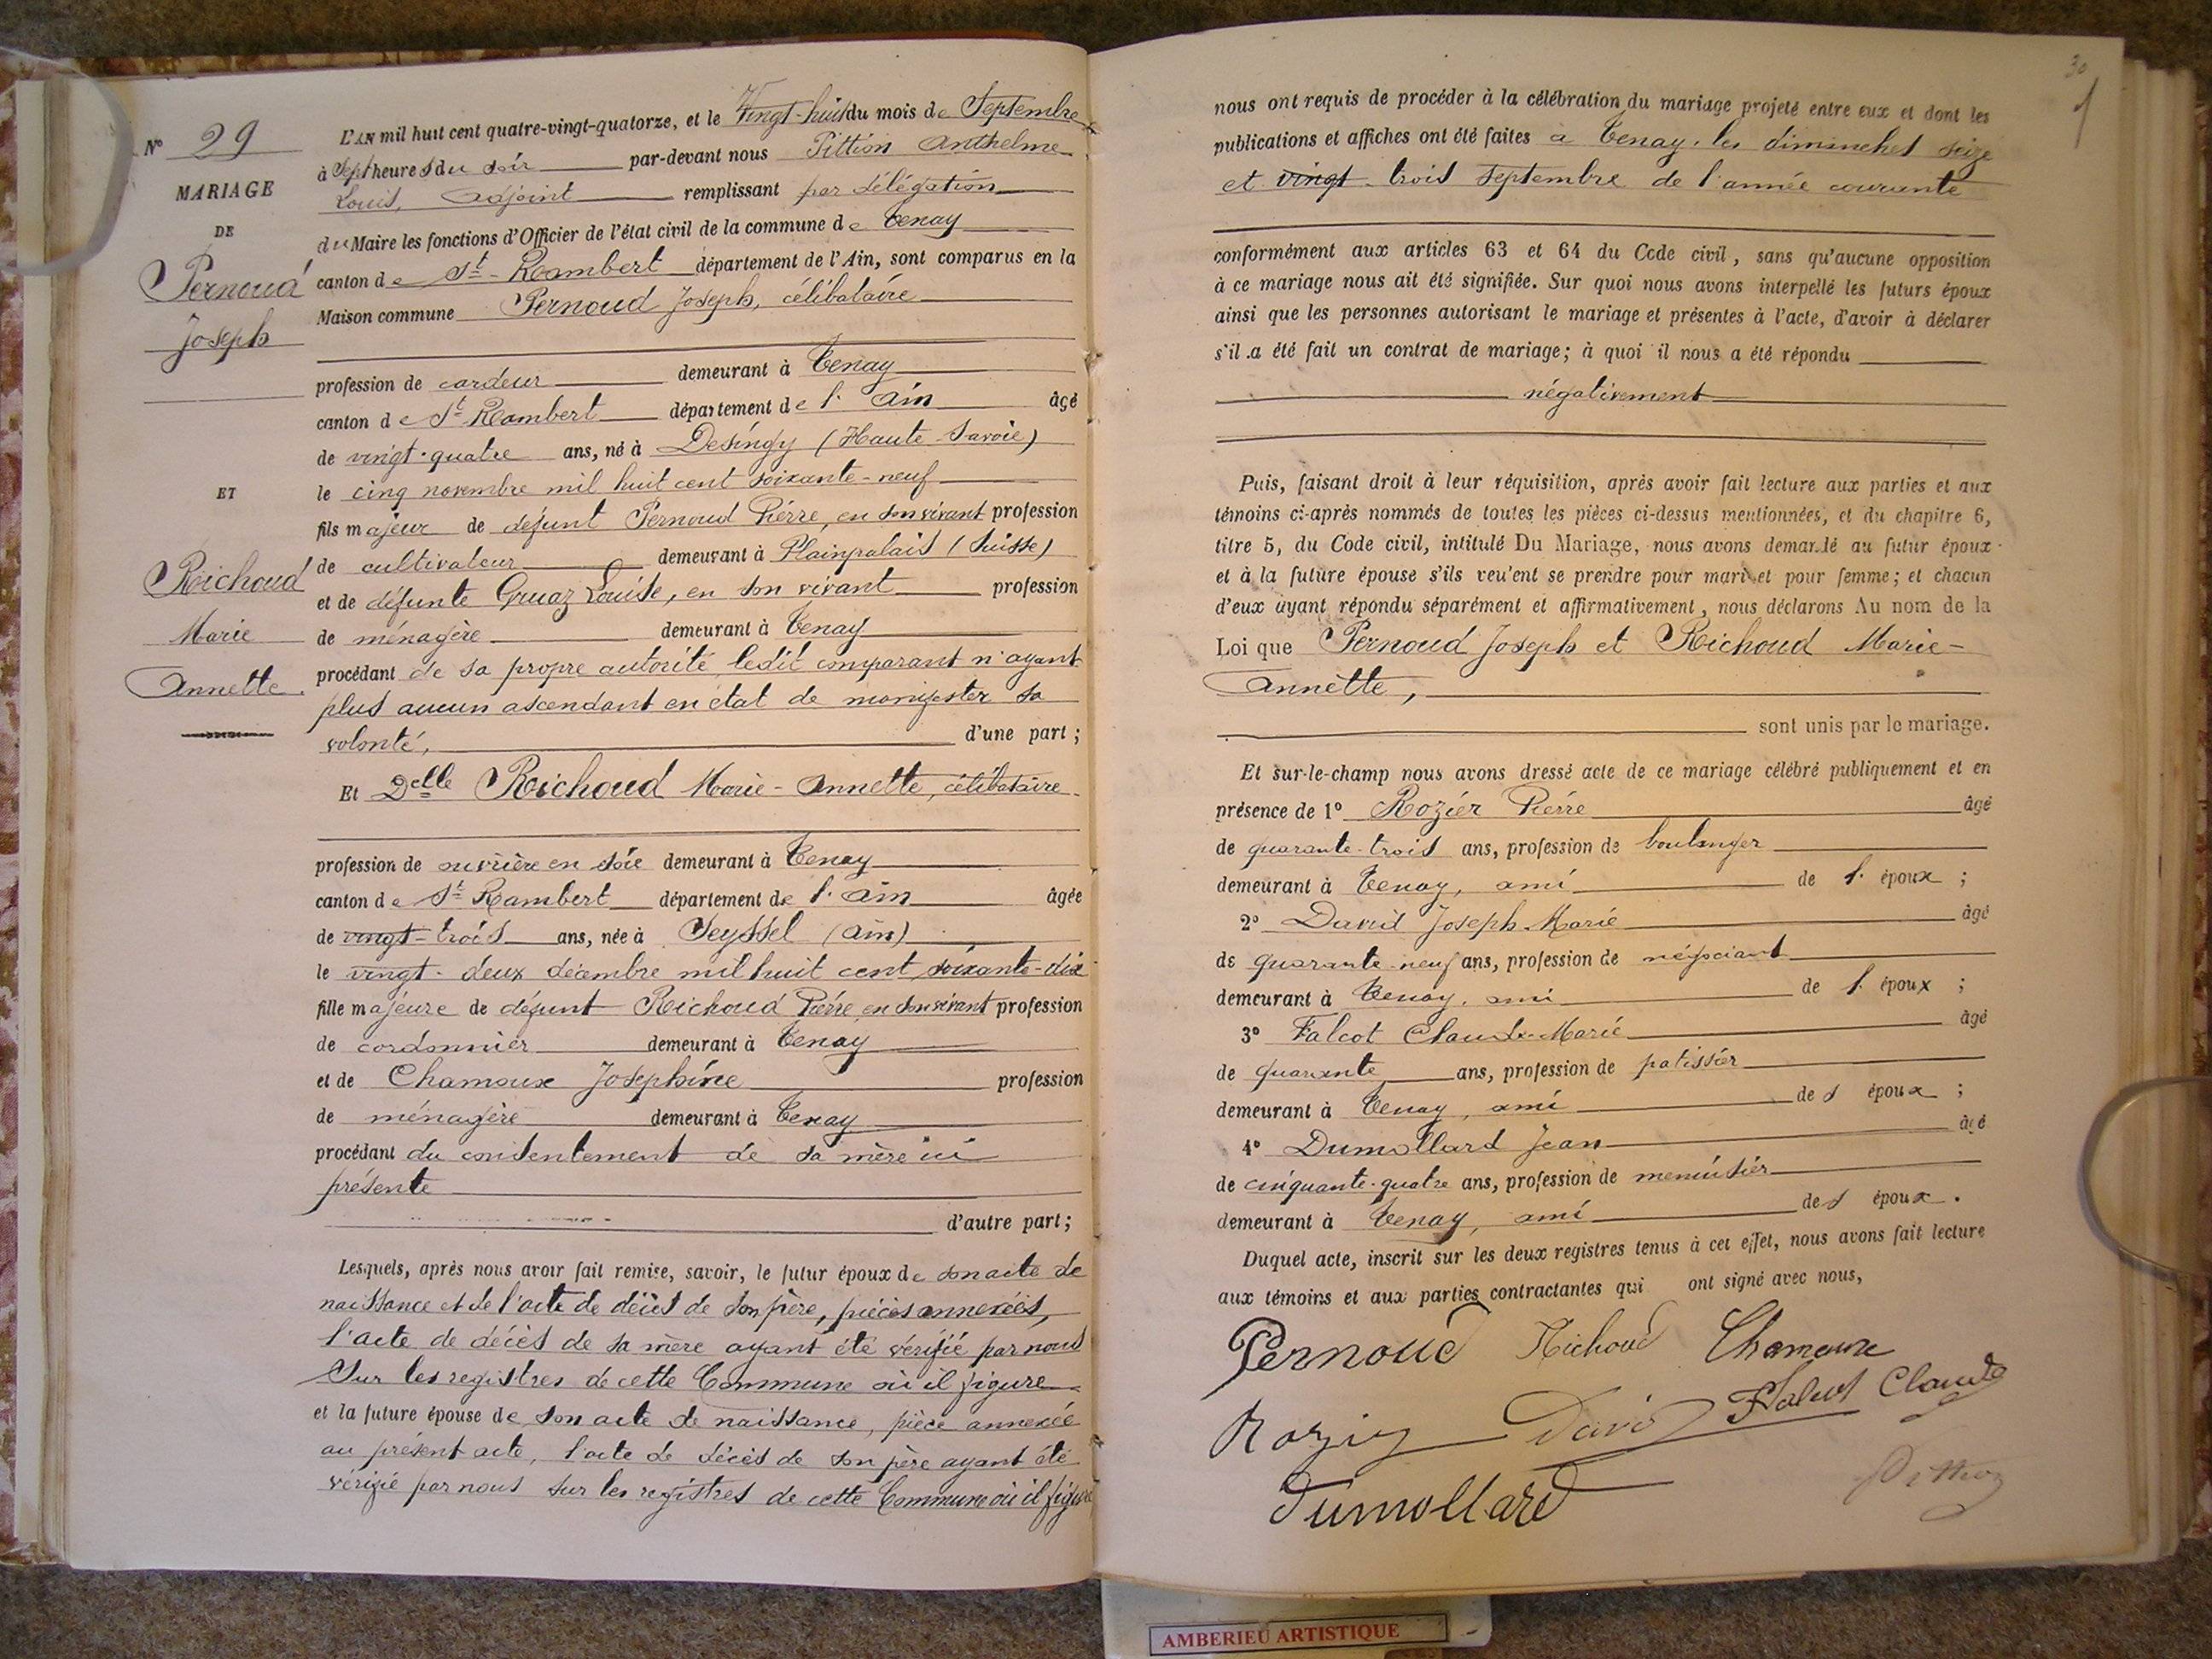 Nº 29
MARIAGE
DE
Pernoud
Joseph
ET
Richoud
Marie
Annette.
L'AN mil huit cent quatre-vingt-quatorze, et le Vingt-huit du mois de Septembre
à Sept heures du soir par-devant nous Pittion Anthelme
Louis, Adjoint remplissant par délégation
du Maire les fonctions d'Officier de l'état civil de la commune de Tenay
canton de St-Rambert département de l'Ain, sont comparus en la
Maison commune Pernoud Joseph, célibataire
profession de cardeur demeurant à Tenay
canton de St-Rambert département de l'Ain âgé
de vingt-quatre ans, né à Desingy (Haute-Savoie)
le cinq novembre mil huit cent soixante-neuf
fils majeur de défunt Pernoud Pierre, en son vivant profession
de cultivateur demeurant à Plainpalais (Suisse)
et de défunte Gruaz Louise, en son vivant profession
de ménagère demeurant à Tenay
procédant de sa propre autorité, ledit comparant n'ayant
plus aucun ascendant en état de manifester sa
volonté, d'une part ;
Et Delle Richoud Marie-Annette, célibataire
profession de ouvrière en soie demeurant à Tenay
canton de St-Rambert département de l'Ain âgée
de vingt-trois ans, née à Seyssel (Ain)
le vingt-deux décembre mil huit cent soixante-dix
fille majeure de défunt Richoud Pierre en son vivant profession
de cordonnier demeurant à Tenay
et de Chamoux Joséphine profession
de ménagère demeurant à Tenay
procédant du consentement de sa mère ici
présente
d'autre part ;
Lesquels, après nous avoir fait remise, savoir, le futur époux de son acte de
naissance et de l'acte de décès de son père, pièces annexées,
l'acte de décès de sa mère ayant été vérifié par nous
sur les registres de cette Commune où il figure
et la future épouse de son acte de naissance, pièce annexée
au présent acte, l'acte de décès de son père ayant été
vérifié par nous sur les registres de cette Commune où il figure
30
nous ont requis de procéder à la célébration du mariage projeté entre eux et dont les
publications et affiches ont été faites à Tenay les dimanches seize
et vingt-trois septembre de l'année courante
conformément aux articles 63 et 64 du Code civil, sans qu'aucune opposition
à ce mariage nous ait été signifiée. Sur quoi nous avons interpellé les futurs époux
ainsi que les personnes autorisant le mariage et présentes à l'acte, d'avoir à déclarer
s'il a été fait un contrat de mariage ; à quoi il nous a été répondu
négativement
Puis, faisant droit à leur réquisition, après avoir fait lecture aux parties et aux
témoins ci-après nommés de toutes les pièces ci-dessus mentionnées, et du chapitre 6,
titre 5, du Code civil, intitulé Du Mariage, nous avons demandé au futur époux
et à la future épouse s'ils veulent se prendre pour mari et pour femme ; et chacun
d'eux ayant répondu séparément et affirmativement, nous déclarons Au nom de la
Loi que Pernoud Joseph et Richoud Marie-
Annette,
sont unis par le mariage.
Et sur-le-champ nous avons dressé acte de ce mariage célébré publiquement et en
présence de 1º Rozier Pierre âgé
de quarante-trois ans, profession de boulanger
demeurant à Tenay, ami de l'époux ;
2º David Joseph-Marie âgé
de quarante-neuf ans, profession de négociant
demeurant à Tenay, ami de l'époux ;
3º Falcot Claude-Marie âgé
de quarante ans, profession de patissier
demeurant à Tenay, ami des époux ;
4º Dumollard Jean âgé
de cinquante-quatre ans, profession de menuisier
demeurant à Tenay, ami des époux.
Duquel acte, inscrit sur les deux registres tenus à cet effet, nous avons fait lecture
aux témoins et aux parties contractantes qui ont signé avec nous,
Pernoud Richoud Chamoux
Rozier David Falcot Claude
Dumollard Pittion
AMBERIEU ARTISTIQUE